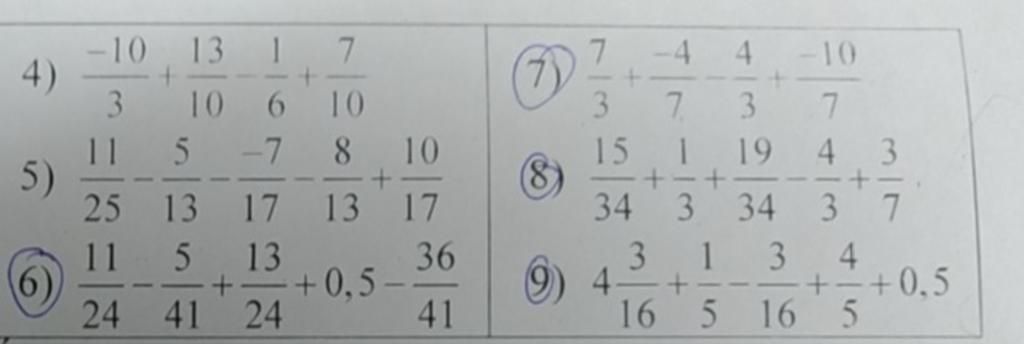 4) \frac{-10}{3} + \frac{13}{10} - \frac{1}{6} + \frac{7}{10}
5) \frac{11}{25} - \frac{5}{13} - \frac{-7}{17} - \frac{8}{13} + \frac{10}{17}
6) \frac{11}{24} - \frac{5}{41} + \frac{13}{24} + 0,5 - \frac{36}{41}
7) \frac{7}{3} + \frac{-4}{7} - \frac{4}{3} + \frac{-10}{7}
8) \frac{15}{34} + \frac{1}{3} + \frac{19}{34} - \frac{4}{3} + \frac{3}{7}
9) 4\frac{3}{16} + \frac{1}{5} - \frac{3}{16} + \frac{4}{5} + 0,5